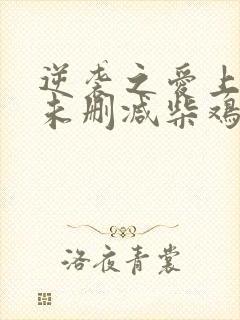 逆袭之爱上
未删减柴鸡
洛夜青裳